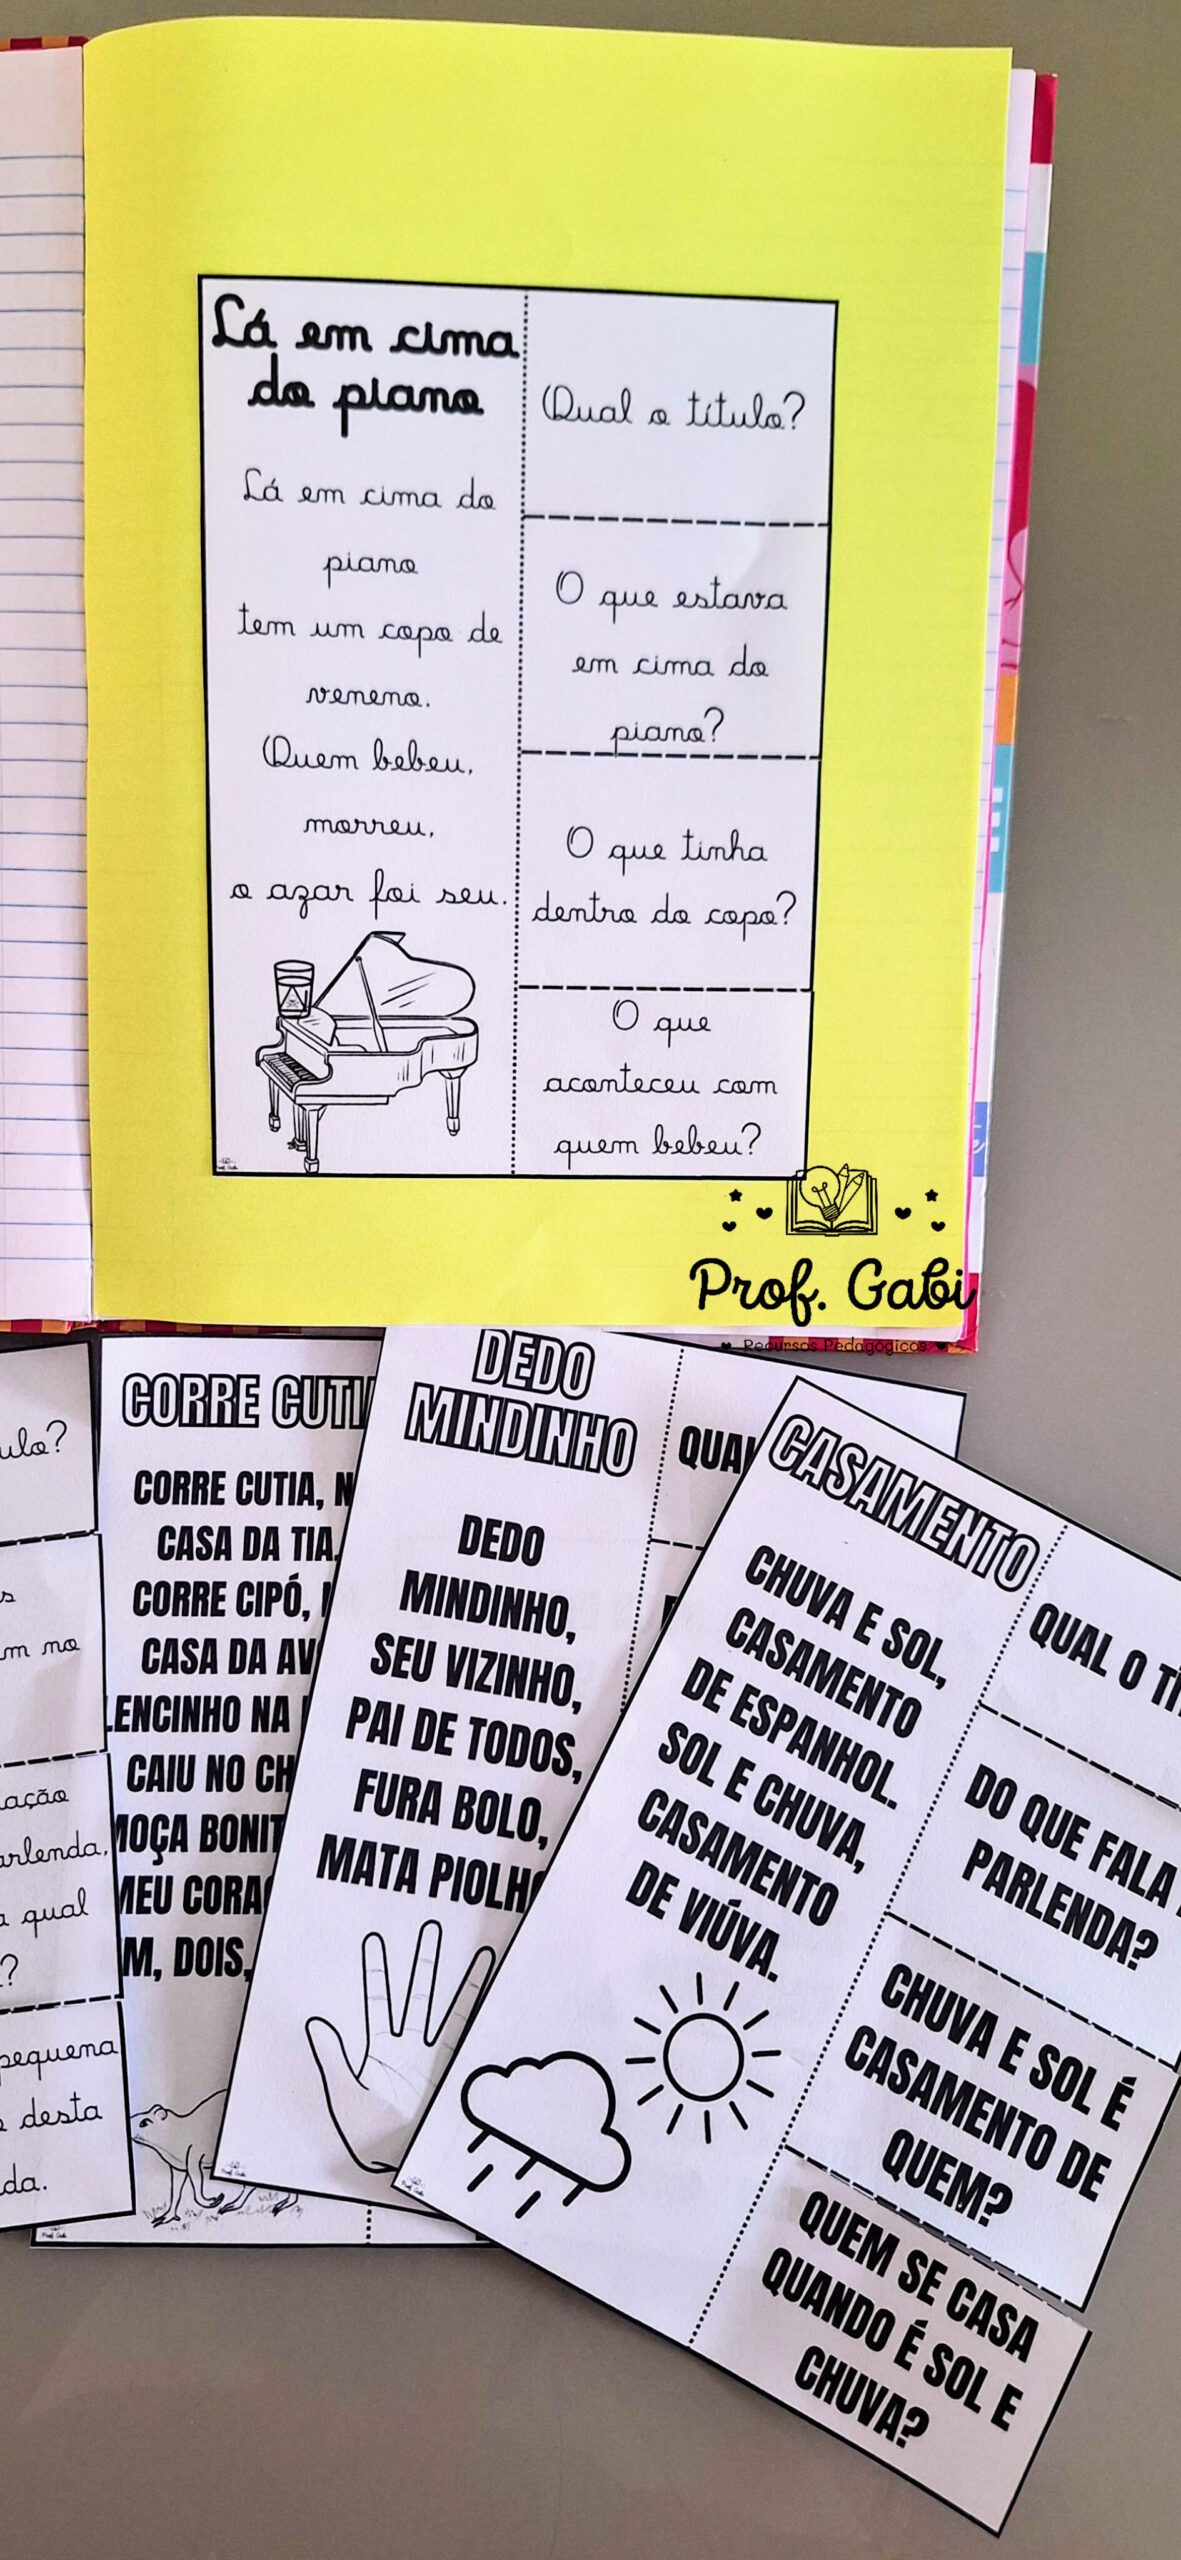 Lá em cima
do piano
Lá em cima do
piano
tem um copo de
veneno.
Quem bebeu,
morreu,
o azar foi seu.
Qual o título?
O que estava
em cima do
piano?
O que tinha
dentro do copo?
O que
aconteceu com
quem bebeu?
Prof. Gabi
Recursos Pedagógicos
ulo?
m no
ação
arlenda,
a qual
?
pequena
desta
da.
CORRE CUTI
CORRE CUTIA, N
CASA DA TIA.
CORRE CIPÓ,
CASA DA AV
LENCINHO NA
CAIU NO CH
MOÇA BONIT
MEU CORAÇ
M, DOIS,
DEDO
MINDINHO
DEDO
MINDINHO,
SEU VIZINHO,
PAI DE TODOS,
FURA BOLO,
MATA PIOLHO
QUAL
CASAMENTO
CHUVA E SOL,
CASAMENTO
DE ESPANHOL.
SOL E CHUVA,
CASAMENTO
DE VIÚVA.
QUAL O TÍ
DO QUE FALA
PARLENDA?
CHUVA E SOL É
CASAMENTO DE
QUEM?
QUEM SE CASA
QUANDO É SOL E
CHUVA?